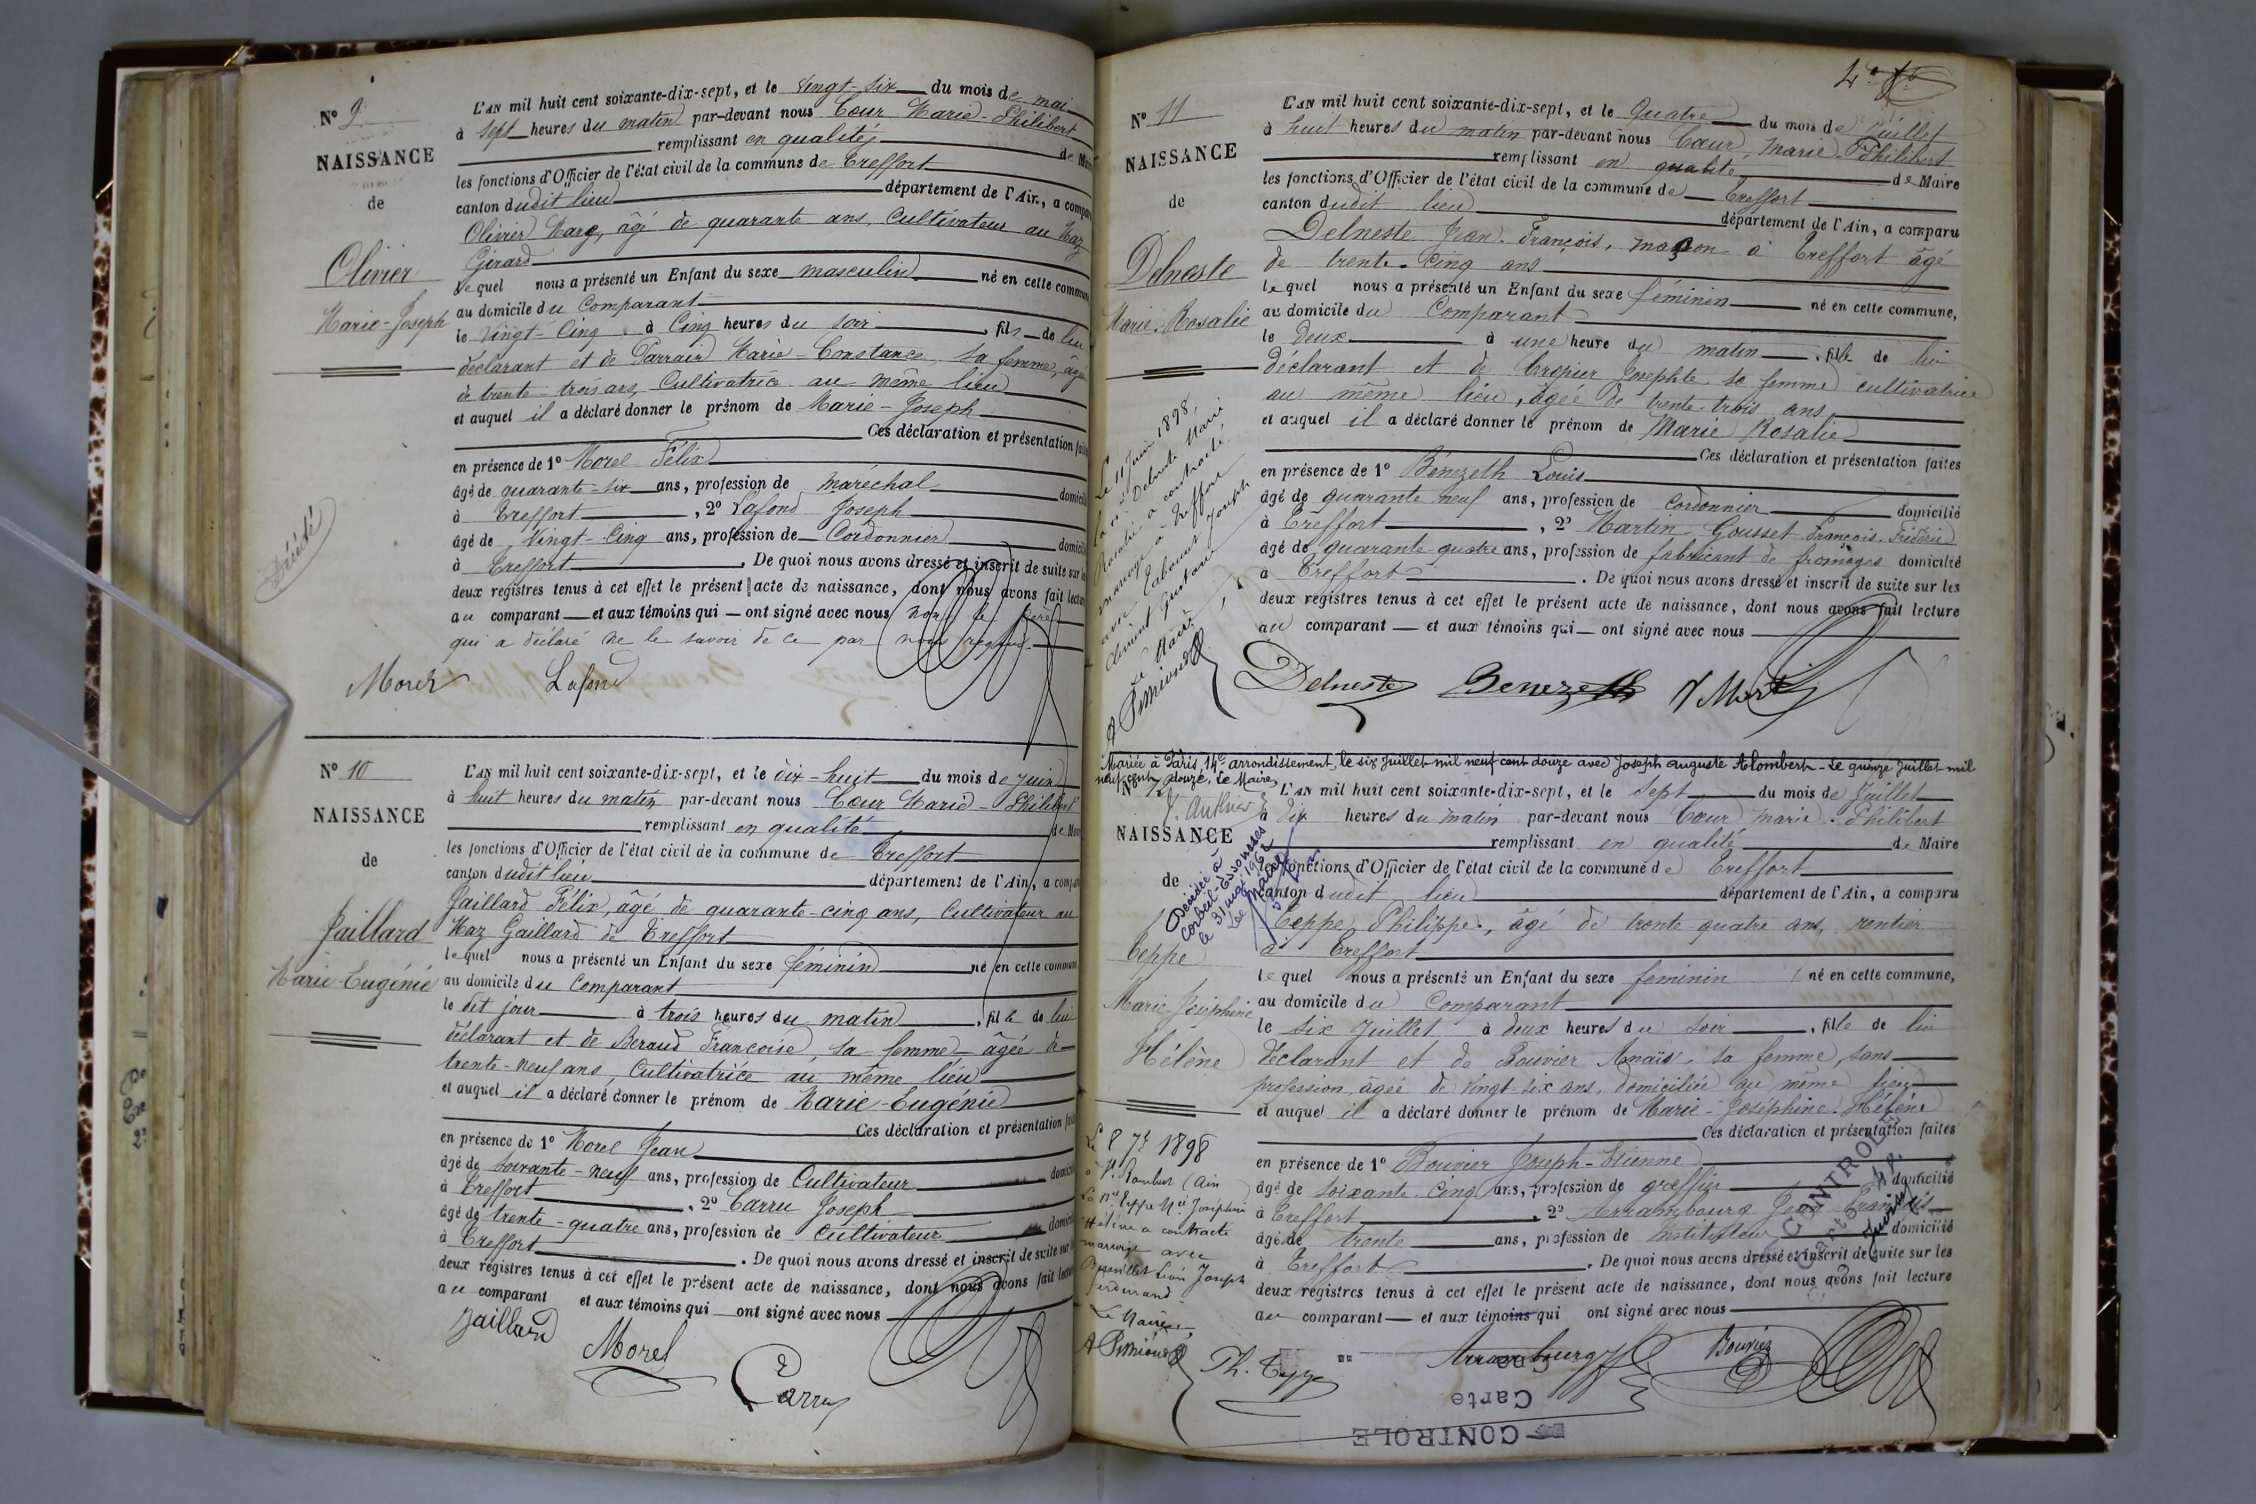 N° 9
NAISSANCE
de
Olivier
Marie-Joseph
Décédé
L'AN mil huit cent soixante-dix-sept, et le vingt-six du mois de mai
à sept heures du matin par-devant nous Cœur Marie-Philibert
remplissant en qualité de Mai
les fonctions d'Officier de l'état civil de la commune de Treffort
canton dudit lieu département de l'Ain, a compar
Olivier Marc, âgé de quarante ans, Cultivateur au Maz
Girard
lequel nous a présenté un Enfant du sexe masculin né en cette commune
au domicile du Comparant
le vingt-cinq à Cinq heures du soir, fils de lui
déclarant et de Parrain Marie-Constance, sa femme, âgée
de trente-trois ans, Cultivatrice au même lieu
et auquel il a déclaré donner le prénom de Marie-Joseph
Ces déclaration et présentation faites
en présence de 1° Morel Félix
âgé de quarante-six ans, profession de maréchal domicilié
à Treffort, 2° Lafond Joseph
âgé de vingt-cinq ans, profession de Cordonnier domicilié
à Treffort. De quoi nous avons dressé et inscrit de suite sur les
deux registres tenus à cet effet le présent acte de naissance, dont nous avons fait lecture
au comparant et aux témoins qui ont signé avec nous non le père
qui a déclaré ne le savoir de ce par nous requis.
Morel Lafond
N° 10
NAISSANCE
de
Jaillard
Marie-Eugénie
L'AN mil huit cent soixante-dix-sept, et le dix-huit du mois de juin
à huit heures du matin par-devant nous Cœur Marie-Philibert
remplissant en qualité de Mai
les fonctions d'Officier de l'état civil de la commune de Treffort
canton dudit lieu département de l'Ain, a compar
Jaillard Félix, âgé de quarante-cinq ans, Cultivateur au
Maz Gaillard de Treffort
lequel nous a présenté un Enfant du sexe féminin né en cette commune
au domicile du Comparant
le dit jour à trois heures du matin, fille de lui
déclarant et de Beraud Françoise, sa femme âgée de
trente-neuf ans, Cultivatrice au même lieu
et auquel il a déclaré donner le prénom de Marie-Eugénie
Ces déclaration et présentation faites
en présence de 1° Morel Jean
âgé de soixante-neuf ans, profession de Cultivateur domicilié
à Treffort, 2° Carru Joseph
âgé de trente-quatre ans, profession de Cultivateur domicilié
à Treffort. De quoi nous avons dressé et inscrit de suite sur
deux registres tenus à cet effet le présent acte de naissance, dont nous avons fait lecture
au comparant et aux témoins qui ont signé avec nous
Jaillard Morel Carru
N° 11
NAISSANCE
de
Delneste
Marie-Rosalie
Le 11 Juin 1898,
la née Delneste Marie
Rosalie a contracté
mariage à Treffort
avec Tabouret Joseph
Clément Gustave
Le Maire
L'AN mil huit cent soixante-dix-sept, et le Quatre du mois de Juillet
à huit heures du matin par-devant nous Cœur Marie-Philibert
remplissant en qualité de Maire
les fonctions d'Officier de l'état civil de la commune de Treffort
canton dudit lieu département de l'Ain, a comparu
Delneste Jean-François, maçon à Treffort âgé
de trente-cinq ans
lequel nous a présenté un Enfant du sexe féminin né en cette commune,
au domicile du Comparant
le deux à une heure du matin, fille de lui
déclarant et de Josephte sa femme cultivatrice
au même lieu, âgée de trente-trois ans
et auquel il a déclaré donner le prénom de Marie Rosalie
Ces déclaration et présentation faites
en présence de 1° Bénezeth Louis
âgé de quarante neuf ans, profession de cordonnier domicilié
à Treffort, 2° Martin Gousset François Frédéric
âgé de quarante-quatre ans, profession de fabricant de fromages domicilié
à Treffort. De quoi nous avons dressé et inscrit de suite sur les
deux registres tenus à cet effet le présent acte de naissance, dont nous avons fait lecture
au comparant et aux témoins qui ont signé avec nous
Delneste Benezeth
Mariée à Paris, 14e arrondissement, le six Juillet mil neuf cent douze avec Joseph Auguste Alombert - Le quinze Juillet mil
neuf cent douze, Le Maire,
N°
NAISSANCE
de
Teppe
Marie Joséphine
Hélène
Décédée à
Corbeil-Essonnes
le 31 1962
Le Maire
Le 8 7bre 1898
à St Rambert (Ain
la née Teppe Mie Joséphine
Hélène a contracté
mariage avec
Léon Joseph
Ferdinand
Le Maire,
L'AN mil huit cent soixante-dix-sept, et le Sept du mois de Juillet
à dix heures du matin par-devant nous Cœur Marie-Philibert
remplissant en qualité de Maire
les fonctions d'Officier de l'état civil de la commune de Treffort
canton dudit lieu département de l'Ain, a comparu
Teppe Philippe, âgé de trente quatre ans, rentier
à Treffort
lequel nous a présenté un Enfant du sexe féminin né en cette commune,
au domicile du Comparant
le six Juillet à deux heures du soir, fille de lui
déclarant et de Bouvier Anaïs, sa femme, sans
profession, âgée de vingt-six ans, domiciliée au même lieu
et auquel il a déclaré donner le prénom de Marie-Joséphine-Hélène
Ces déclaration et présentation faites
en présence de 1° Bouvier Joseph-Etienne
âgé de soixante-cinq ans, profession de greffier domicilié
à Treffort, 2° Arrambourg Jean François
âgé de trente ans, profession de Instituteur domicilié
à Treffort. De quoi nous avons dressé et inscrit de suite sur les
deux registres tenus à cet effet le présent acte de naissance, dont nous avons fait lecture
au comparant et aux témoins qui ont signé avec nous
Ph. Teppe Arrambourg Bouvier
CONTROLE
Carte
CONTROLE